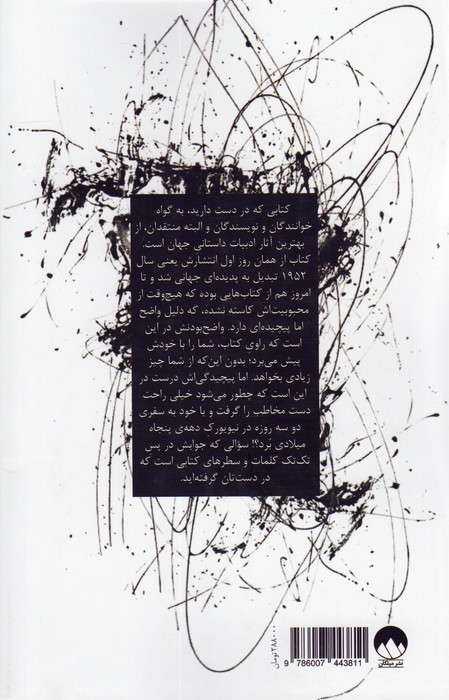 کتابی که در دست دارید، به گواه
خوانندگان و نویسندگان و البته منتقدان، از
بهترین آثار ادبیات داستانی جهان است.
کتاب از همان روز اول انتشارش یعنی سال
۱۹۵۲ تبدیل به پدیده‌ای جهانی شد و تا
امروز هم از کتاب‌هایی بوده که هیچ‌وقت از
محبوبیت‌اش کاسته نشده، که دلیل واضح
اما پیچیده‌ای دارد. واضح‌بودنش در این
است که راوی کتاب، شما را با خودش
پیش می‌برد؛ بدون این‌که از شما چیز
زیادی بخواهد. اما پیچیدگی‌اش درست در
این است که چطور می‌شود خیلی راحت
دست مخاطب را گرفت و با خود به سفری
دو سه روزه در نیویورک دهه‌ی پنجاه
میلادی بُرد؟! سؤالی که جوابش در پس
تک‌تک کلمات و سطرهای کتابی است که
در دست‌تان گرفته‌اید.
۲۸۸۰۰۰تومان
9 786007 443811
نشر میلکان